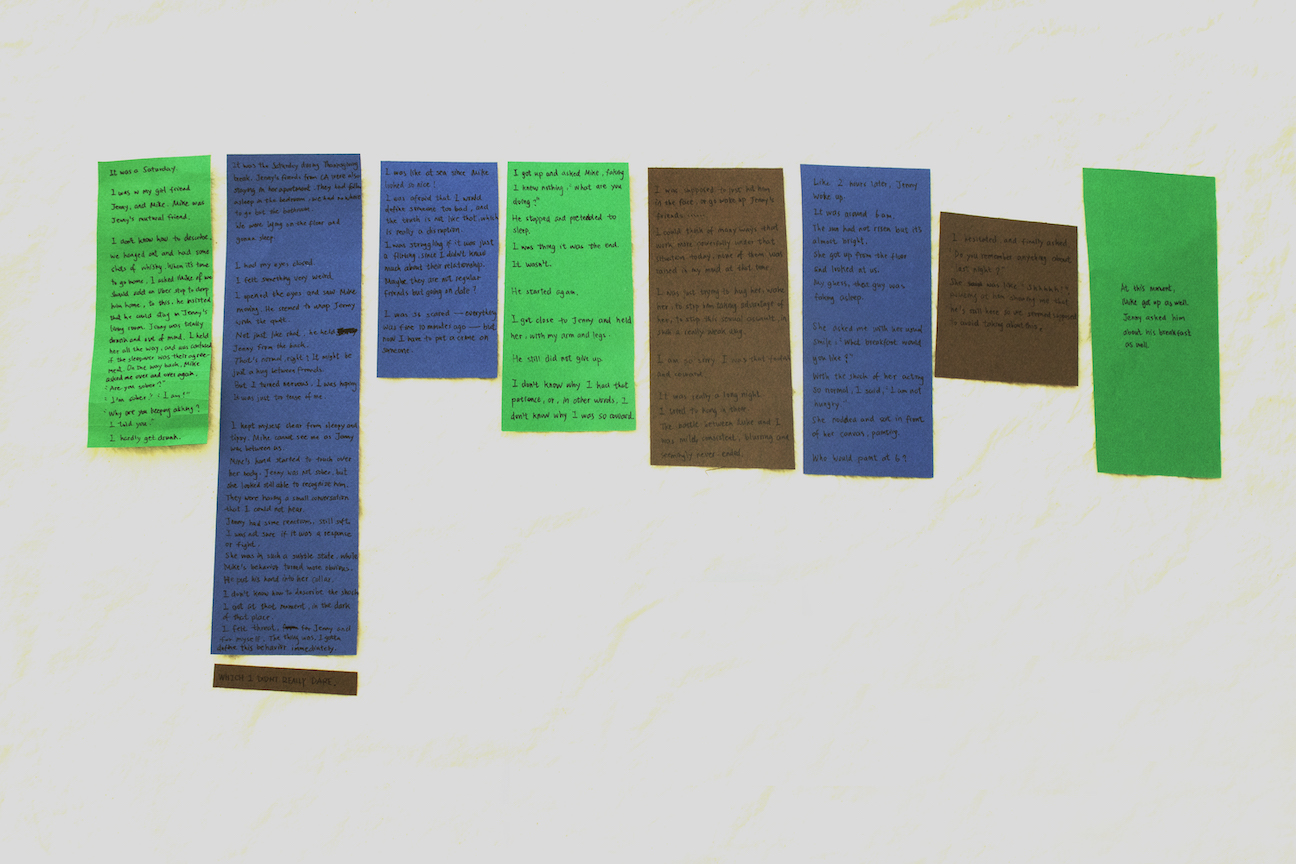 It was a Saturday.
I was w my girl friend
Jenny, and Mike. Mike was
Jenny's mutual friend.
I don't know how to describe.
We hanged out and had some
shots of whisky. When it's time
to go home, I asked Mike if we
should add an Uber stop to drop
him home, to this, he insisted
that he could stay in Jenny's
living room. Jenny was totally
drunk and out of mind. I held
her all the way, and was confused
if the sleepover was their agree-
ment. On the way back, Mike
asked me over and over again.
"Are you sober?"
"I'm sober." "I am!"
"Why are you keeping asking?
I told you."
I hardly get drunk.
It was the Saturday during Thanksgiving
break. Jenny's friends from LA were also
staying in her apartment. They had fallen
asleep in the bedroom, we had nowhere
to go but the bathroom.
We were lying on the floor and
gonna sleep.
I had my eyes closed.
I felt something very weird.
I opened the eyes and saw Mike
moving. He seemed to wrap Jenny
with the quilt.
Not just like that, he held
Jenny from the back.
That's normal, right? It might be
just a hug between friends.
But I turned nervous. I was hoping
it was just the tease of me.
I kept myself clear from sleepy and
tipsy. Mike cannot see me as Jenny
was between us.
Mike's hand started to touch over
her body. Jenny was not sober, but
she looked still able to recognize him.
They were having a small conversation
that I could not hear.
Jenny had some reactions, still soft.
I was not sure if it was a response
or fight.
She was in such a subtle state, while
Mike's behavior turned more obvious.
He put his hand into her collar.
I don't know how to describe the shock
I got at that moment, in the dark
of that place.
I felt threat, for Jenny and
for myself. The thing was, I gotta
define this behavior immediately.
WHICH I DIDN'T REALLY DARE.
I was like at sea since Mike
looked so nice!
I was afraid that I would
define someone too bad, and
the truth is not like that, which
is really a disruption.
I was struggling if it was just
a flirting, since I didn't know
much about their relationship.
Maybe they are not regular
friends but going on date?
I was so scared — everything
was fine 10 minutes ago — but
now I have to put a crime on
someone.
I got up and asked Mike, faking
I knew nothing: "What are you
doing?"
He stopped and pretended to
sleep.
I was thing it was the end.
It wasn't.
He started again.
I got close to Jenny and held
her, with my arm and legs.
He still did not give up.
I don't know why I had that
patience, or, in other words, I
don't know why I was so coward.
I was supposed to just hit him
in the face, or go wake up Jenny's
friends ......
I could think of many ways that
work more concretely under that
situation today, none of them was
raised in my mind at that time.
I was just trying to hug her, wake
her, to stop him taking advantage of
her, to stop this sexual assault, in
such a really weak way.
I am so sorry I was that
and coward.
It was really a long night.
I tried to hung a
The hassle between Luke and I
was mildly consistent, blurring and
seemingly never ended.
Like 2 hours later, Jenny
woke up.
It was around 6 am.
The sun had not risen but it's
almost bright.
She got up from the floor
and looked at us.
My guess, that guy was
faking asleep.
She asked me with her usual
smile: "What breakfast would
you like?"
With the shock of her acting
so normal, I said, "I am not
hungry."
She nodded and sat in front
of her canvas, painting.
Who would paint at 6?
I hesitated, and finally asked,
"Do you remember anything about
last night?"
She was like "Shhhhh!"
pointing at him showing me that
he's still here so we seemed supposed
to avoid talking about this.
At this moment,
Mike got up as well.
Jenny asked him
about his breakfast
as well.